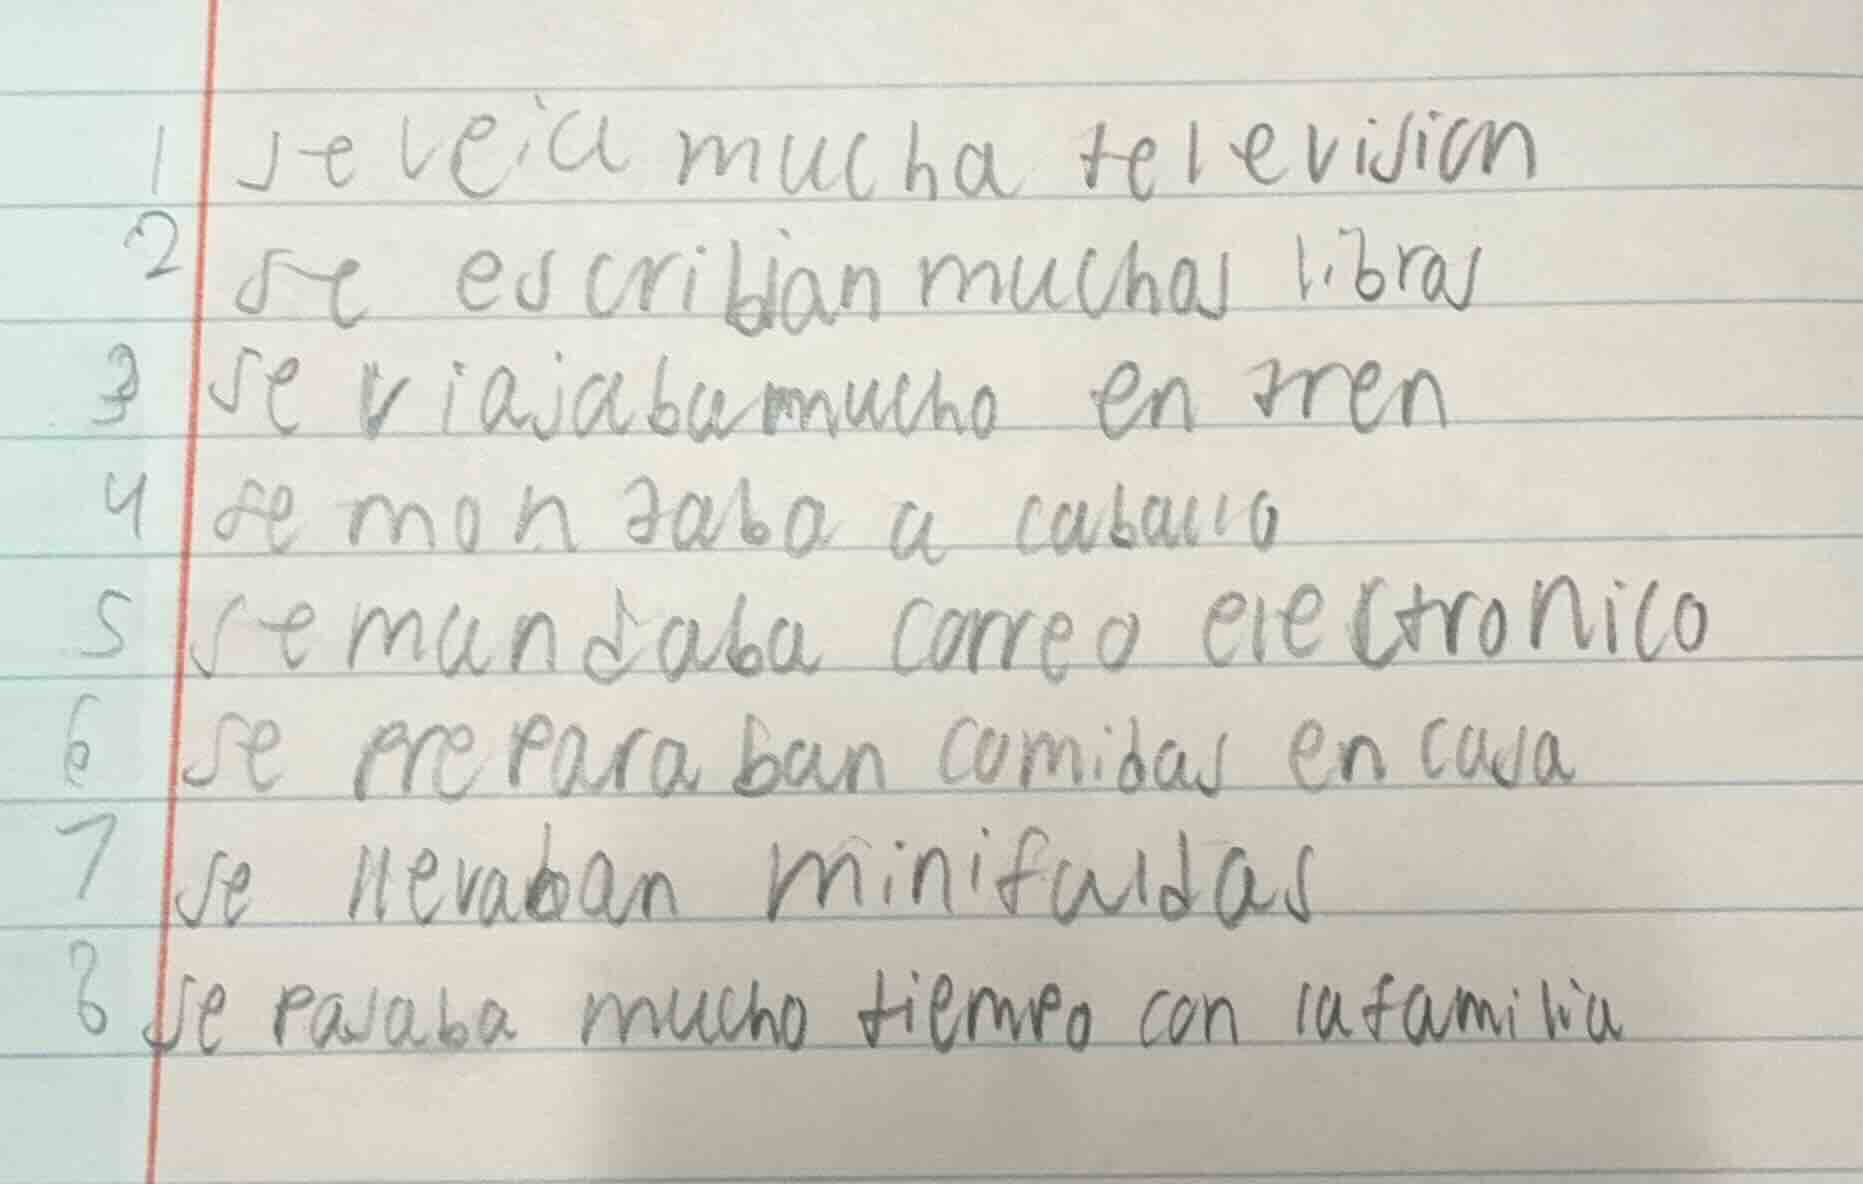 1 se veía mucha television
2 se escribían muchos libros
3 se viajaba mucho en tren
4 se montaba a caballo
5 se mandaba correo electronico
6 se preparaban comidas en casa
7 se llevaban minifaldas
8 se pasaba mucho tiempo con la familia